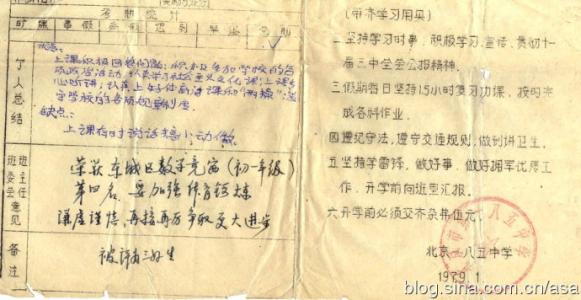 考勤统计
旷课 事假 病假 迟到 早退 全勤
优点:
上课积极回答问题,积极参加学校的各
守学校的各项规章制度
缺点:
上课有时说话搞小动作
个人总结
荣获东城区数学竞赛(初一年级)
第四名 要加强体育锻炼
谦虚谨慎,再接再厉争取更大进步
班主任
班委会意见
被评为三好生
备注
(带齐学习用具)
二坚持学习时事,积极学习、宣传、贯彻十一
届三中全会公报精神。
三假期每日坚持1.5小时复习功课,按时完
成各科作业。
四遵纪守法,遵守交通规则,做到讲卫生。
五坚持学雷锋,做好事,做好拥军优属工
作,开学前向班里汇报。
六开学前必须交齐杂费伍元。
北京一八五中学
1979.1.
blog.sina.com.cn/asa